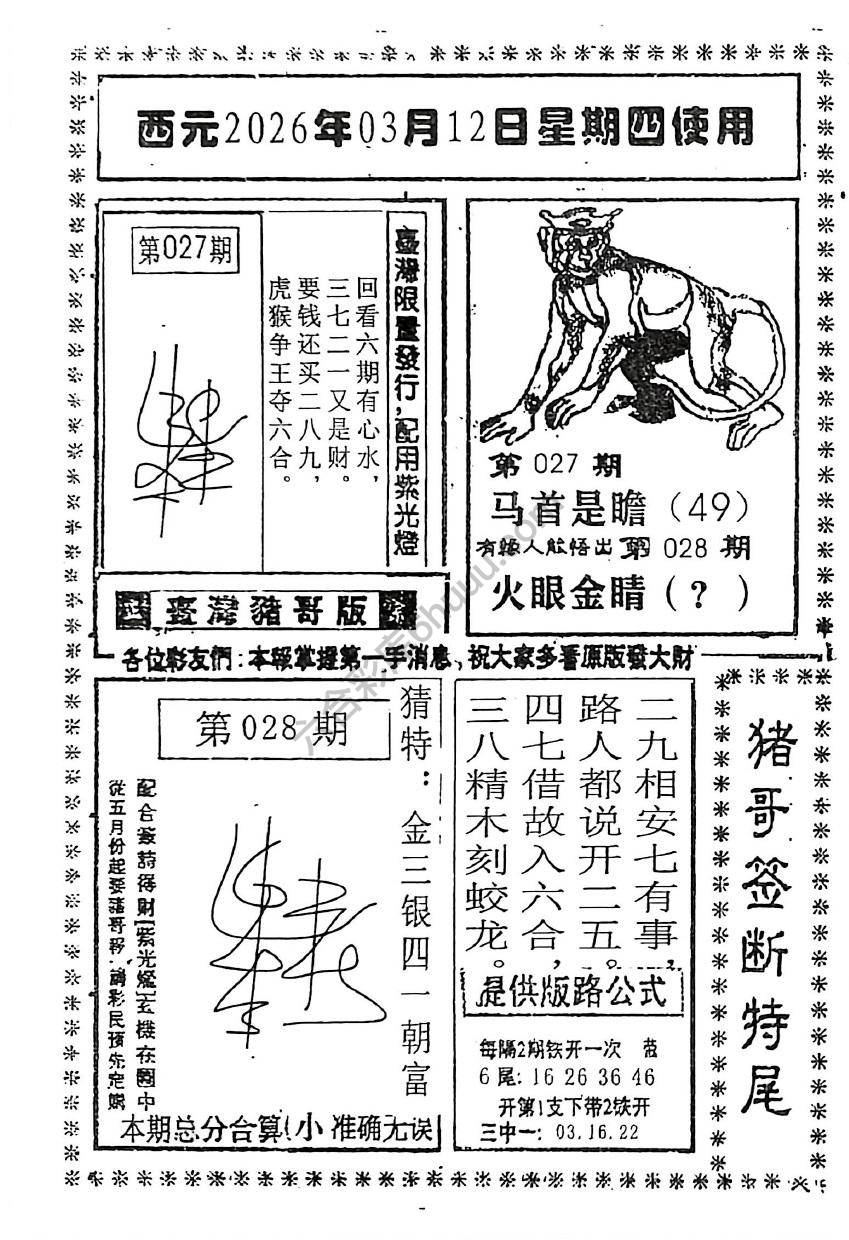 西元2026年03月12日星期四使用
第027期
臺灣限量發行,配用紫光燈
回看六期有心水,
三七二一又是财。
要钱还买二八九,
虎猴争王夺六合。
第027期
马首是瞻(49)
有缘人能悟出 第028期
火眼金睛(?)
臺灣豬哥版
各位彩友們:本報掌握第一手消息、祝大家多看原版發大財
第028期
猜特:金三银四一朝富
配合簽詩得財[紫光燈]玄機在圖中
從五月份起要豬哥報.請彩民預先定購
本期总分合算(小 准确无误
二九相安七有事,
路人都说开二五。
四七借故入六合,
三八精木刻蛟龙。
提供版路公式
每隔2期铁开一次
6尾:16 26 36 46
开第1支下带2铁开
三中一:03.16.22
猪哥签断特尾
六合彩库6huuu.com